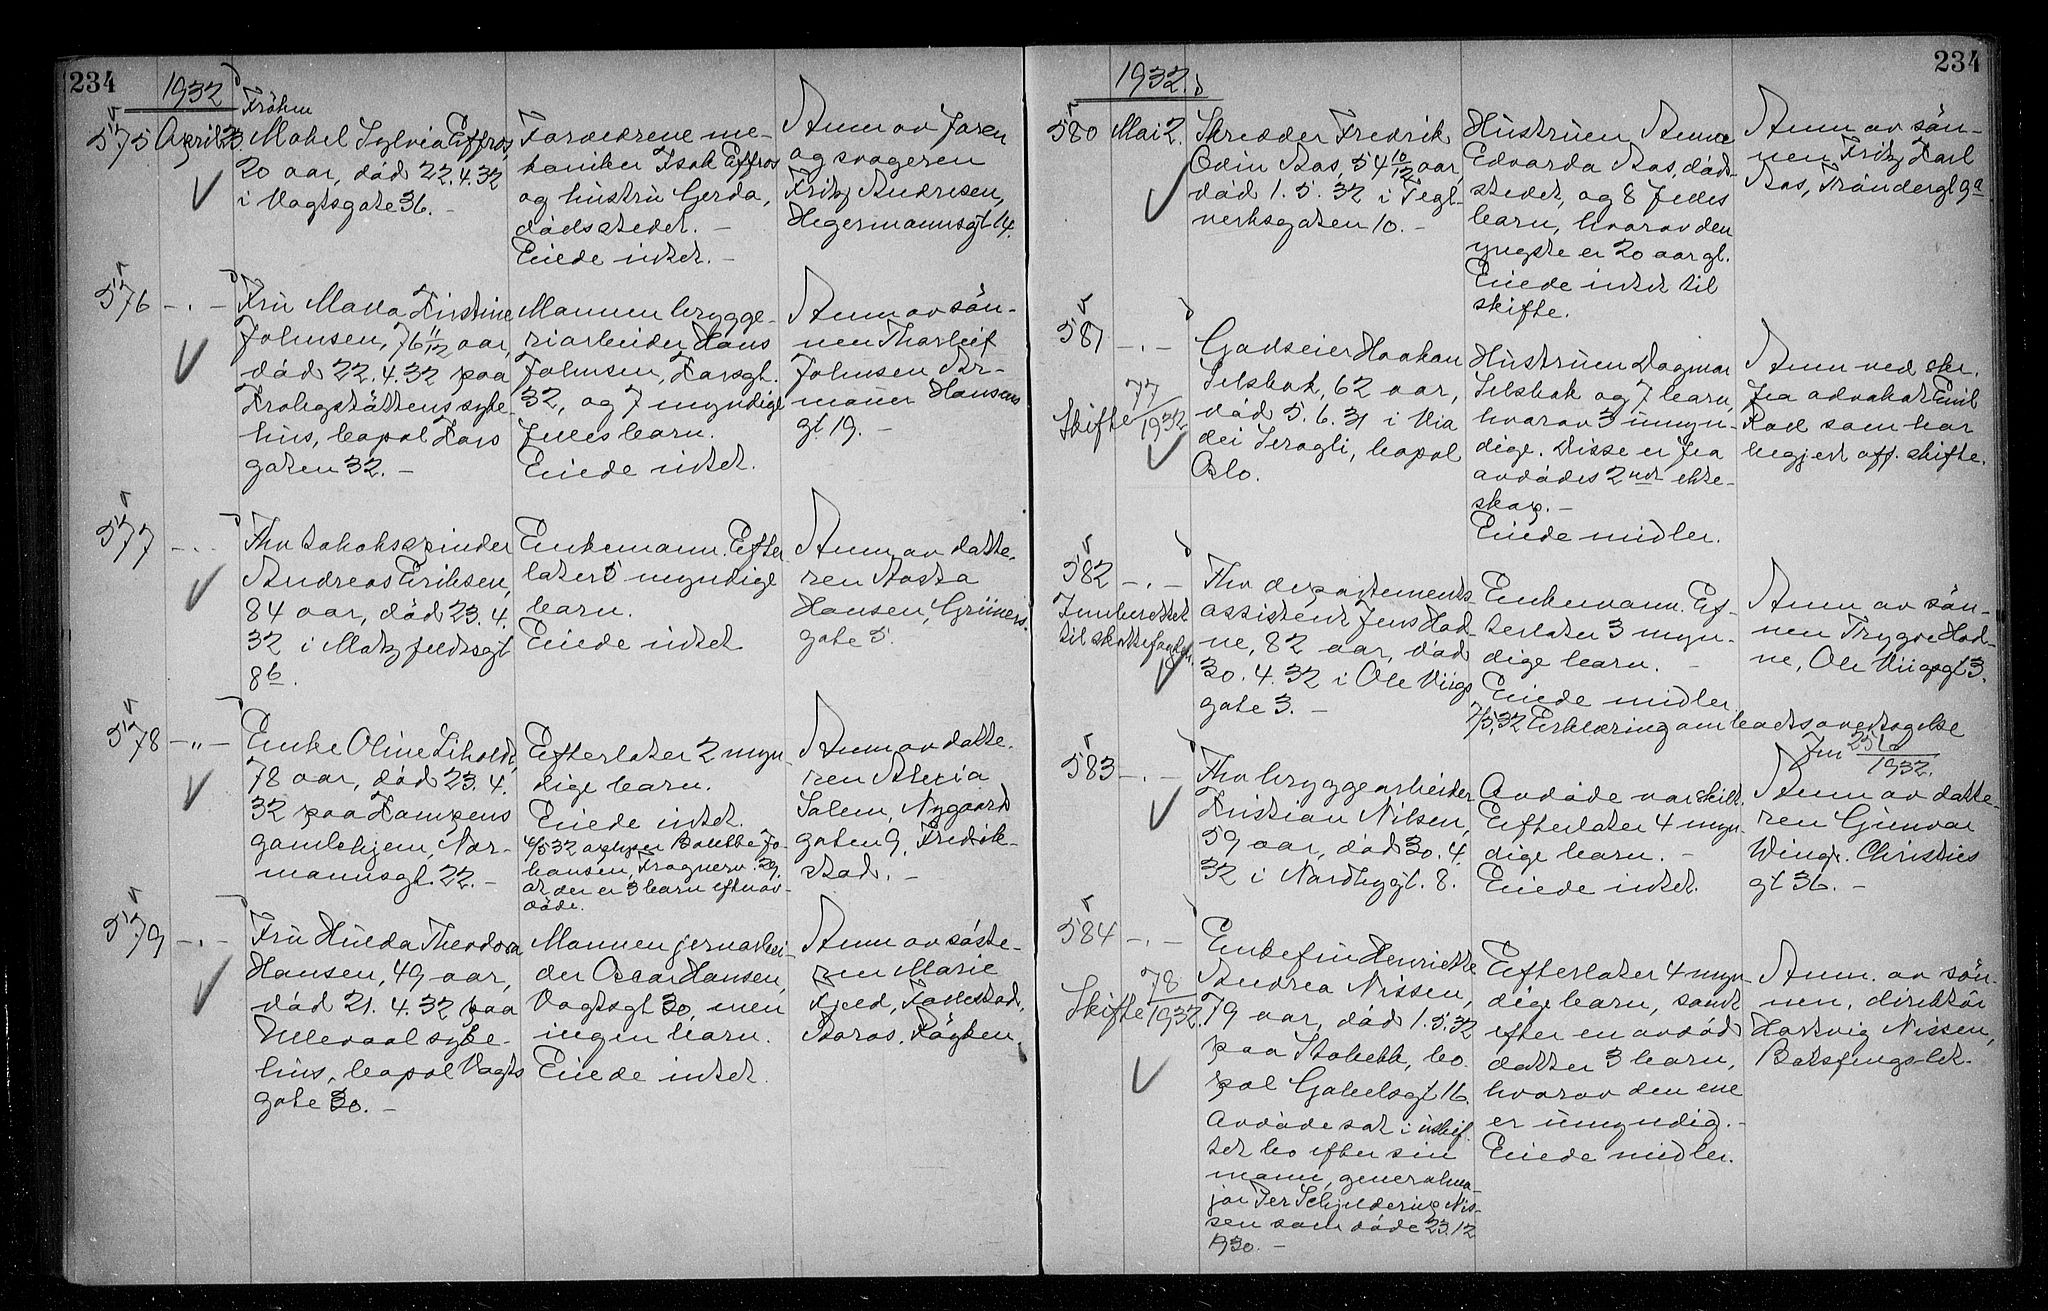 234
1932
575 April 23.
Frøken
Mabel Sylvia Effros,
20 aar, död 22.4.32
i Vogtsgate 36. -
Forældrene me-
kaniker Isak Effros
og hustru Gerda,
dödsstedet. -
Eiede intet. -
Anm av faren
og svogeren
Fritz Andresen,
Hegermannsgt 14.
576 - . -
Fru Maria Kristine
Johnsen, 76 11/12 aar,
död 22.4.32 paa
Krohgstöttens syke-
hus, bopal Kors
gaten 32. -
Mannen brygge-
riarbeider Hans
Johnsen, Korsgt.
32, og 7 myndige
felles barn.
Eiede intet.
Anm av sön-
nen Thorleif
Johnsen Ar-
mauer Hansens
gt 19. -
577 - . -
Fhv tobaksspinder
Andreas Eriksen,
84 aar, död 23.4.
32 i Motzfeldsgt
8b.
Enkemann. Efter
later 5 myndige
barn.
Eiede intet
Anm av datte-
ren Aasta
Hansen, Grüners
gate 5.
578 - " -
Enke Oline Liholdt,
78 aar, död 23.4.
32 paa Kampens
gamlehjem, Nor-
mannsgt. 22. -
Efterlater 2 myn
dige barn.
Eiede intet.
4/5 32 oplyser Bolette Jo-
hansen, Frognerv. 39,
at der er 3 barn efter av-
döde.
Anm av datte-
ren Alexia
Salem, Nygaard
gaten 9, Fredrik-
stad. -
579 - . -
Fru Hulda Theodora
Hansen, 49 aar,
död 21.4.32 paa
Ullevaal syke-
hus, bopal Vogts
gate 30. -
Mannen jernarbei-
der Oscar Hansen,
Vogtsgt 30, men
ingen barn.
Eiede intet.
Anm av söste-
ren Marie
Fjeld,
Röyken.
234
1932.
580 Mai 2.
Skredder Fredrik
Odin Aas, 54 10/12 aar,
död 1.5.32 i Tegl-
verksgaten 10. -
Hustruen Anna
Edvarda Aas, död-
stedet, og 8 felles
barn, hvorav den
yngste er 20 aar gl.
Eiede intet til
skifte.
Anm av sön-
nen Fritz Karl
Aas, Trøndergt 9a
581 - . -
Skifte 77/1932
Godseier Haakon
Selsbak, 62 aar,
död 5.6.31 i Via
dei Serragli, bopal
Oslo.
Hustruen Dagmar
Selsbak og 7 barn,
hvorav 3 umyn-
dige. Disse er fra
avdödes 2net ekte-
skap. -
Eiede midler.
Anm ved skr.
fra advokat Emil
Rod som har
begjert off. skifte.
582 - . -
Innberettet
til skattefogden.
Fhv departements-
assistent Jens Hod-
ne, 82 aar, död
30.4.32 i Ole Viigs
gate 3. -
Enkemann. Ef-
terlater 3 myn-
dige barn. -
Eiede midler.
7/5 32 Erklæring om boets overtagelse
Anm av sön-
nen Trygve Hod-
ne, Ole Viigsgt 3.
583 - . -
Fhv bryggearbeider
Kristian Nilsen,
59 aar, död 30.4.
32 i Nordbygt. 8.
Avdöde var skilt.
Efterlater 4 myn-
dige barn. -
Eiede intet.
Anm av datte-
ren Gunvor
Winge. Christies
gt 36. -
584 - . -
Skifte 78/1932.
Enkefru Henriette
Andrea Nissen,
79 aar, död 1.5.32
paa Stabekk, bo-
pal Gabelsgt 16.
Avdöde sat i uskif-
tet bo efter sin
mann, generalma-
jor Per Schjelderup Nis-
sen som döde 23.12
1930. -
Efterlater 4 myn
dige barn, samt
efter en avdöd
datter 3 barn,
hvorav den ene
er umyndig. -
Eiede midler.
Anm. av sön-
nen, direktör
Hartvig Nissen,
Botsfengslet.